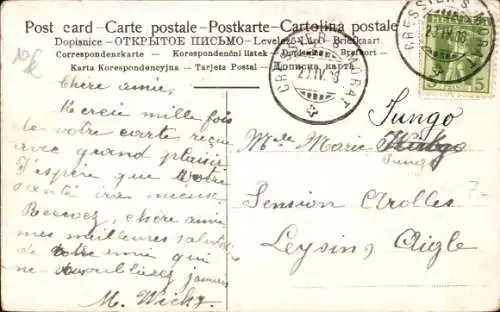 Post card - Carte postale - Postkarte - Cartolina postale
Dopisnice - ОТКРЫТОЕ ПИСЬМО - Levelező-Lap - Briefkaart
Correspondenzkarte - Korespondenční lístek - Brefkort
Karta Korespondencyjna - Tarjeta Postal - Дописна карта
CRESSIER S. MORAT
27.IV.08
CRESSIER S. MORAT
27.IV.08
5
5
Chère amie,
Mercie mille fois
de votre carte reçue
avec grand plaisir
J'espère que votre
santé ira mieux
Recevez, chère amie
mes meilleures salutations
de votre amie qui
ne vous oubliera jamais
M. Wicky
Jungo
Mlle Marie
Jungo
Pension Arolles
Leysin s/ Aigle
7.-